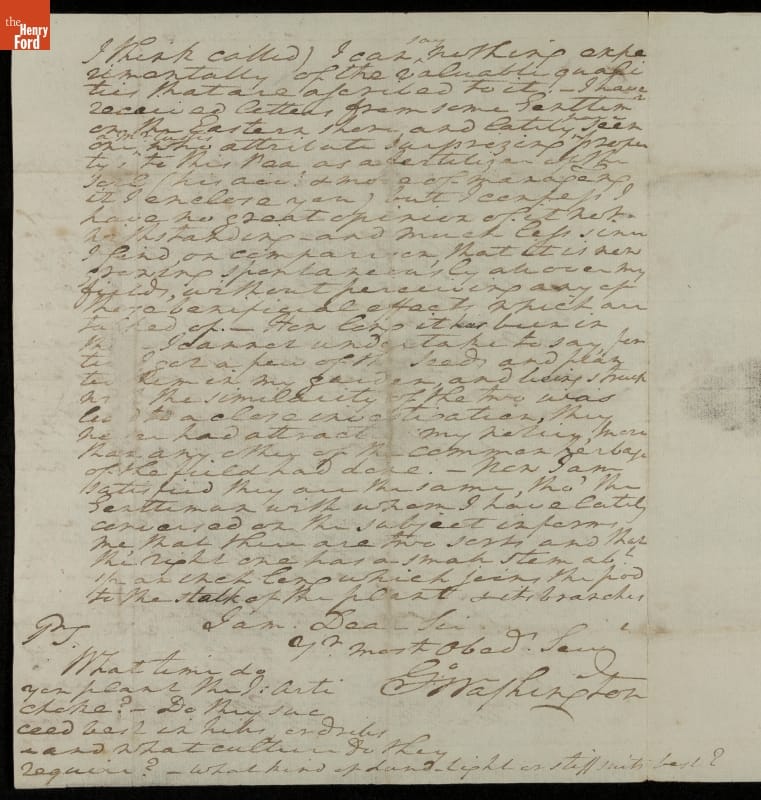 the
Henry
Ford
I think called) I can say nothing expe
rimentally of the valuable quali
ties that are ascribed to it. – I have
received letters from some Gentlemn
on the Eastern shore, and lately seen
one who attribute surprizing proper
ties to this Pea as a fertilizer of the
soil (his acct & mode of managing
it I enclose you) but I confess I
have no great opinion of it not-
withstanding – and much less since
I find, on comparison, that it is now
growing spontaneously all over my
fields, without perceiving any of
those beneficial effects which are
of. – How long it has been in
I cannot undertake to say, for
I got a few of the seeds and plan
ted them in my garden, and being struck
the similarity of the two was
led to a close investigation, they
had attracted my notice, more
than any other of the common herbage
of the field had done. – Now I am
satisfied they are the same, tho' the
Gentleman with whom I have lately
conversed on the subject informs
me that there are two sorts and that
the right one has a small stem abt
an inch long which joins the pod
to the stalk of the plant & its branches
I am – Dear Sir
Yr most Obedt Servt
Go Washington
PS.
What time do
you plant the J: Arti
choke? – Do they suc
ceed best in hills or drills
– and what culture do they
require? – what kind of land – light or stiff suits best?